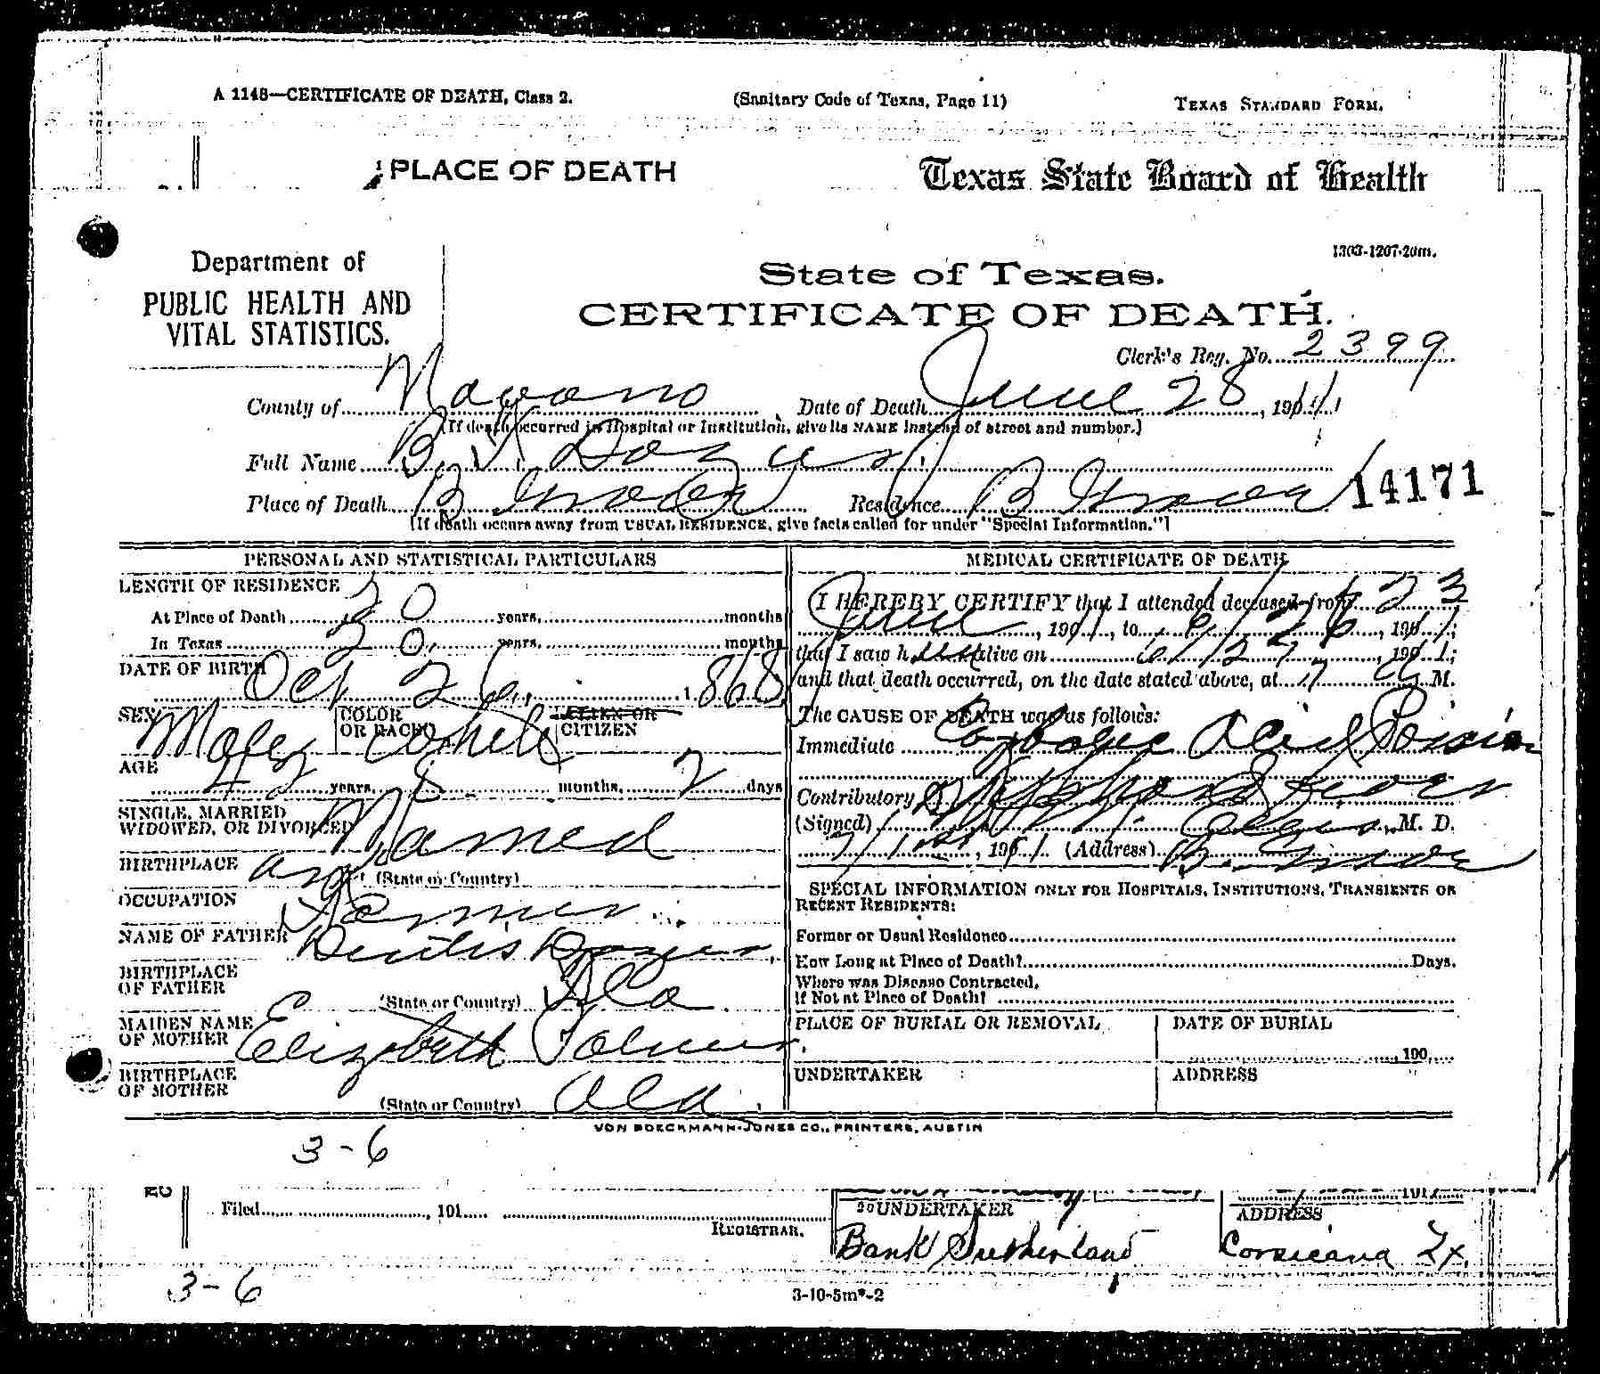 A 1148—CERTIFICATE OF DEATH, Class 2. (Sanitary Code of Texas, Page 11) TEXAS STANDARD FORM.
PLACE OF DEATH Texas State Board of Health
1303-1207-20m.
Department of
PUBLIC HEALTH AND
VITAL STATISTICS.
State of Texas.
CERTIFICATE OF DEATH.
Clerk's Reg. No. 2399
County of Navarro Date of Death June 28, 1911
(If death occurred in Hospital or Institution, give its NAME instead of street and number.)
Full Name B.
Place of Death B Grove Residence B Grove 14171
(If death occurs away from USUAL RESIDENCE, give facts called for under "Special Information.")
PERSONAL AND STATISTICAL PARTICULARS
LENGTH OF RESIDENCE
At Place of Death 30 years, months
In Texas 30 years, months
DATE OF BIRTH Oct 26, 1868
SEX Male COLOR OR RACE White ALIEN OR CITIZEN
AGE 42 years, 8 months, 2 days
SINGLE, MARRIED WIDOWED, OR DIVORCED Maried
BIRTHPLACE (State or Country)
OCCUPATION Farmer
NAME OF FATHER
BIRTHPLACE OF FATHER (State or Country) Ala
MAIDEN NAME OF MOTHER Elizabeth
BIRTHPLACE OF MOTHER (State or Country) Ala.
MEDICAL CERTIFICATE OF DEATH
I HEREBY CERTIFY that I attended deceased from 23
June, 1911, to 6/26, 1911;
that I saw h alive on 6/27, 1911;
and that death occurred, on the date stated above, at M.
The CAUSE OF DEATH was as follows:
Immediate Carbolic Acid Poision
Contributory Fever
(Signed) M. D.
7/1st, 1911 (Address) B. Grove
SPECIAL INFORMATION ONLY FOR HOSPITALS, INSTITUTIONS, TRANSIENTS OR
RECENT RESIDENTS:
Former or Usual Residence
How Long at Place of Death? Days.
Where was Disease Contracted,
if Not at Place of Death?
PLACE OF BURIAL OR REMOVAL DATE OF BURIAL
, 190
UNDERTAKER ADDRESS
VON BOECKMANN-JONES CO., PRINTERS, AUSTIN
3-6
Filed , 191
REGISTRAR.
20 UNDERTAKER ADDRESS
Bank Sutherland Corsicana Tx.
3-6
3-10-5m*-2